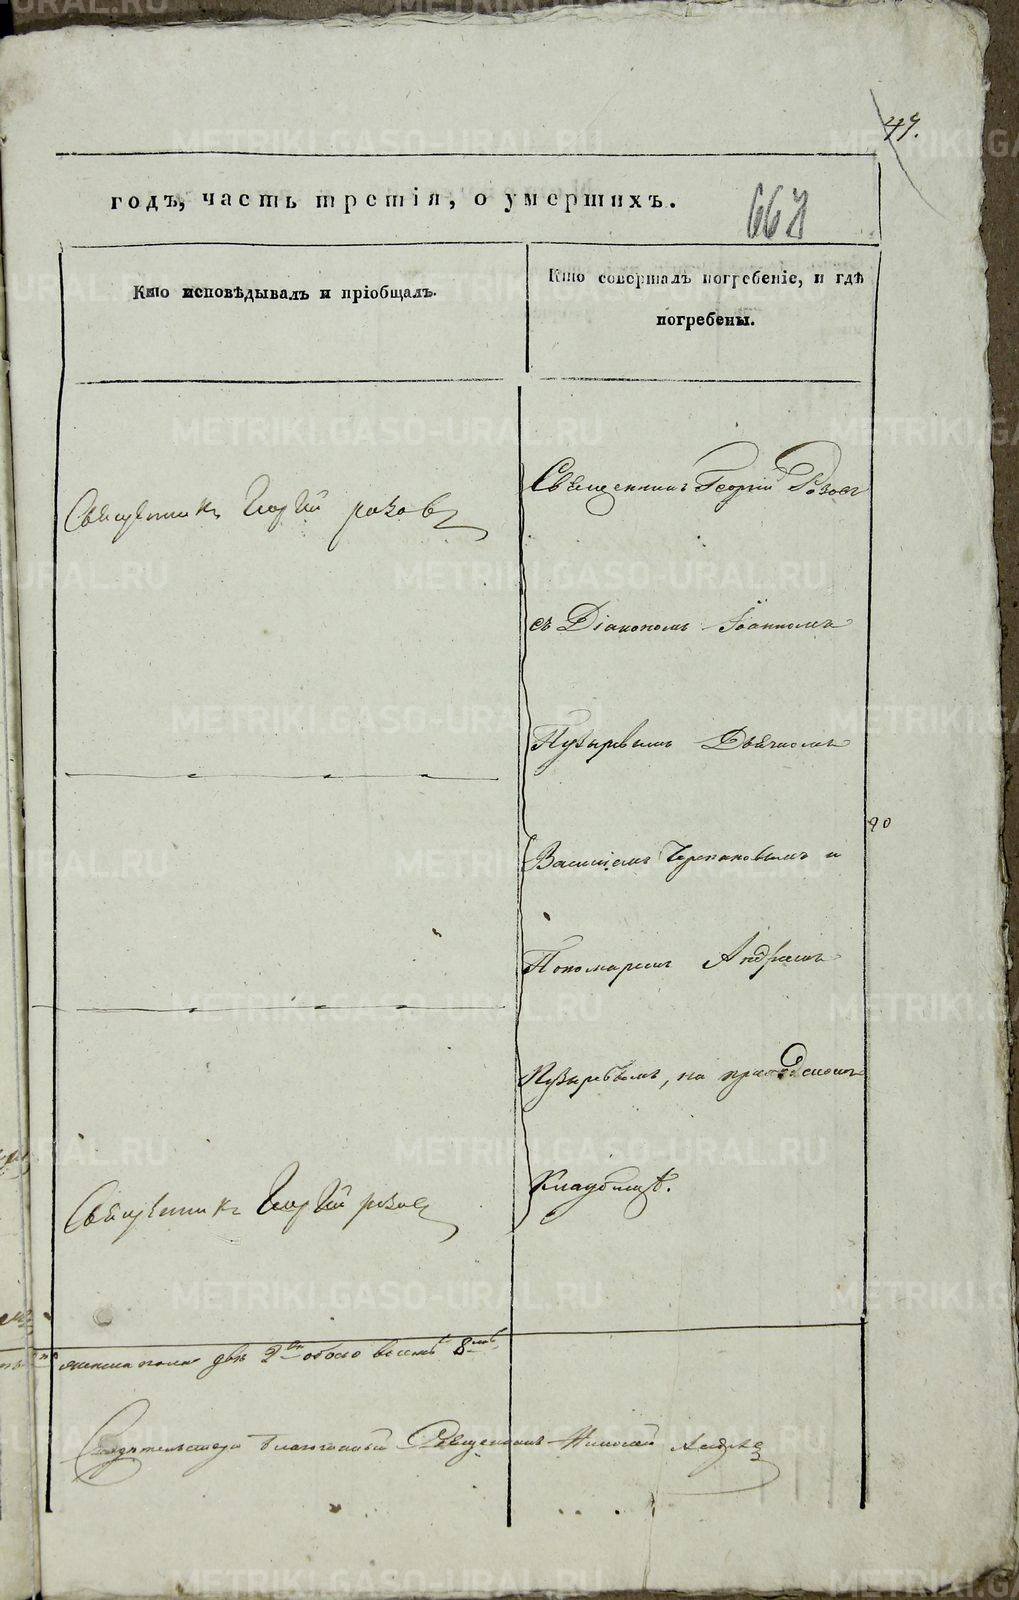 47.
годъ, часть третія, о умершихъ.
667
Кто исповѣдывалъ и пріобщалъ.
Кто совершалъ погребеніе, и гдѣ
погребены.
Священникъ Георгій Розовъ
Священникъ Георгій Розовъ
съ Діакономъ Іоанномъ
Пузыревымъ Дьячкомъ
Василіемъ Черепановымъ и
Пономаремъ Андреемъ
Пузыревымъ, на приходскомъ
Кладбищѣ.
Священникъ Георгій Розовъ
90
женска пола двѣ 2 обоего восемь 8
Благочинный Священникъ Николай
METRIKI.GASO-URAL.RU